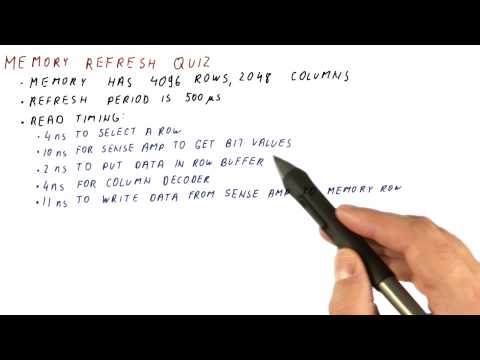 MEMORY REFRESH QUIZ
• MEMORY HAS 4096 ROWS, 2048 COLUMNS
• REFRESH PERIOD IS 500 μs
• READ TIMING:
• 4 ns TO SELECT A ROW
• 10 ns FOR SENSE AMP TO GET BIT VALUES
• 2 ns TO PUT DATA IN ROW BUFFER
• 4 ns FOR COLUMN DECODER
• 11 ns TO WRITE DATA FROM SENSE AMP TO MEMORY ROW